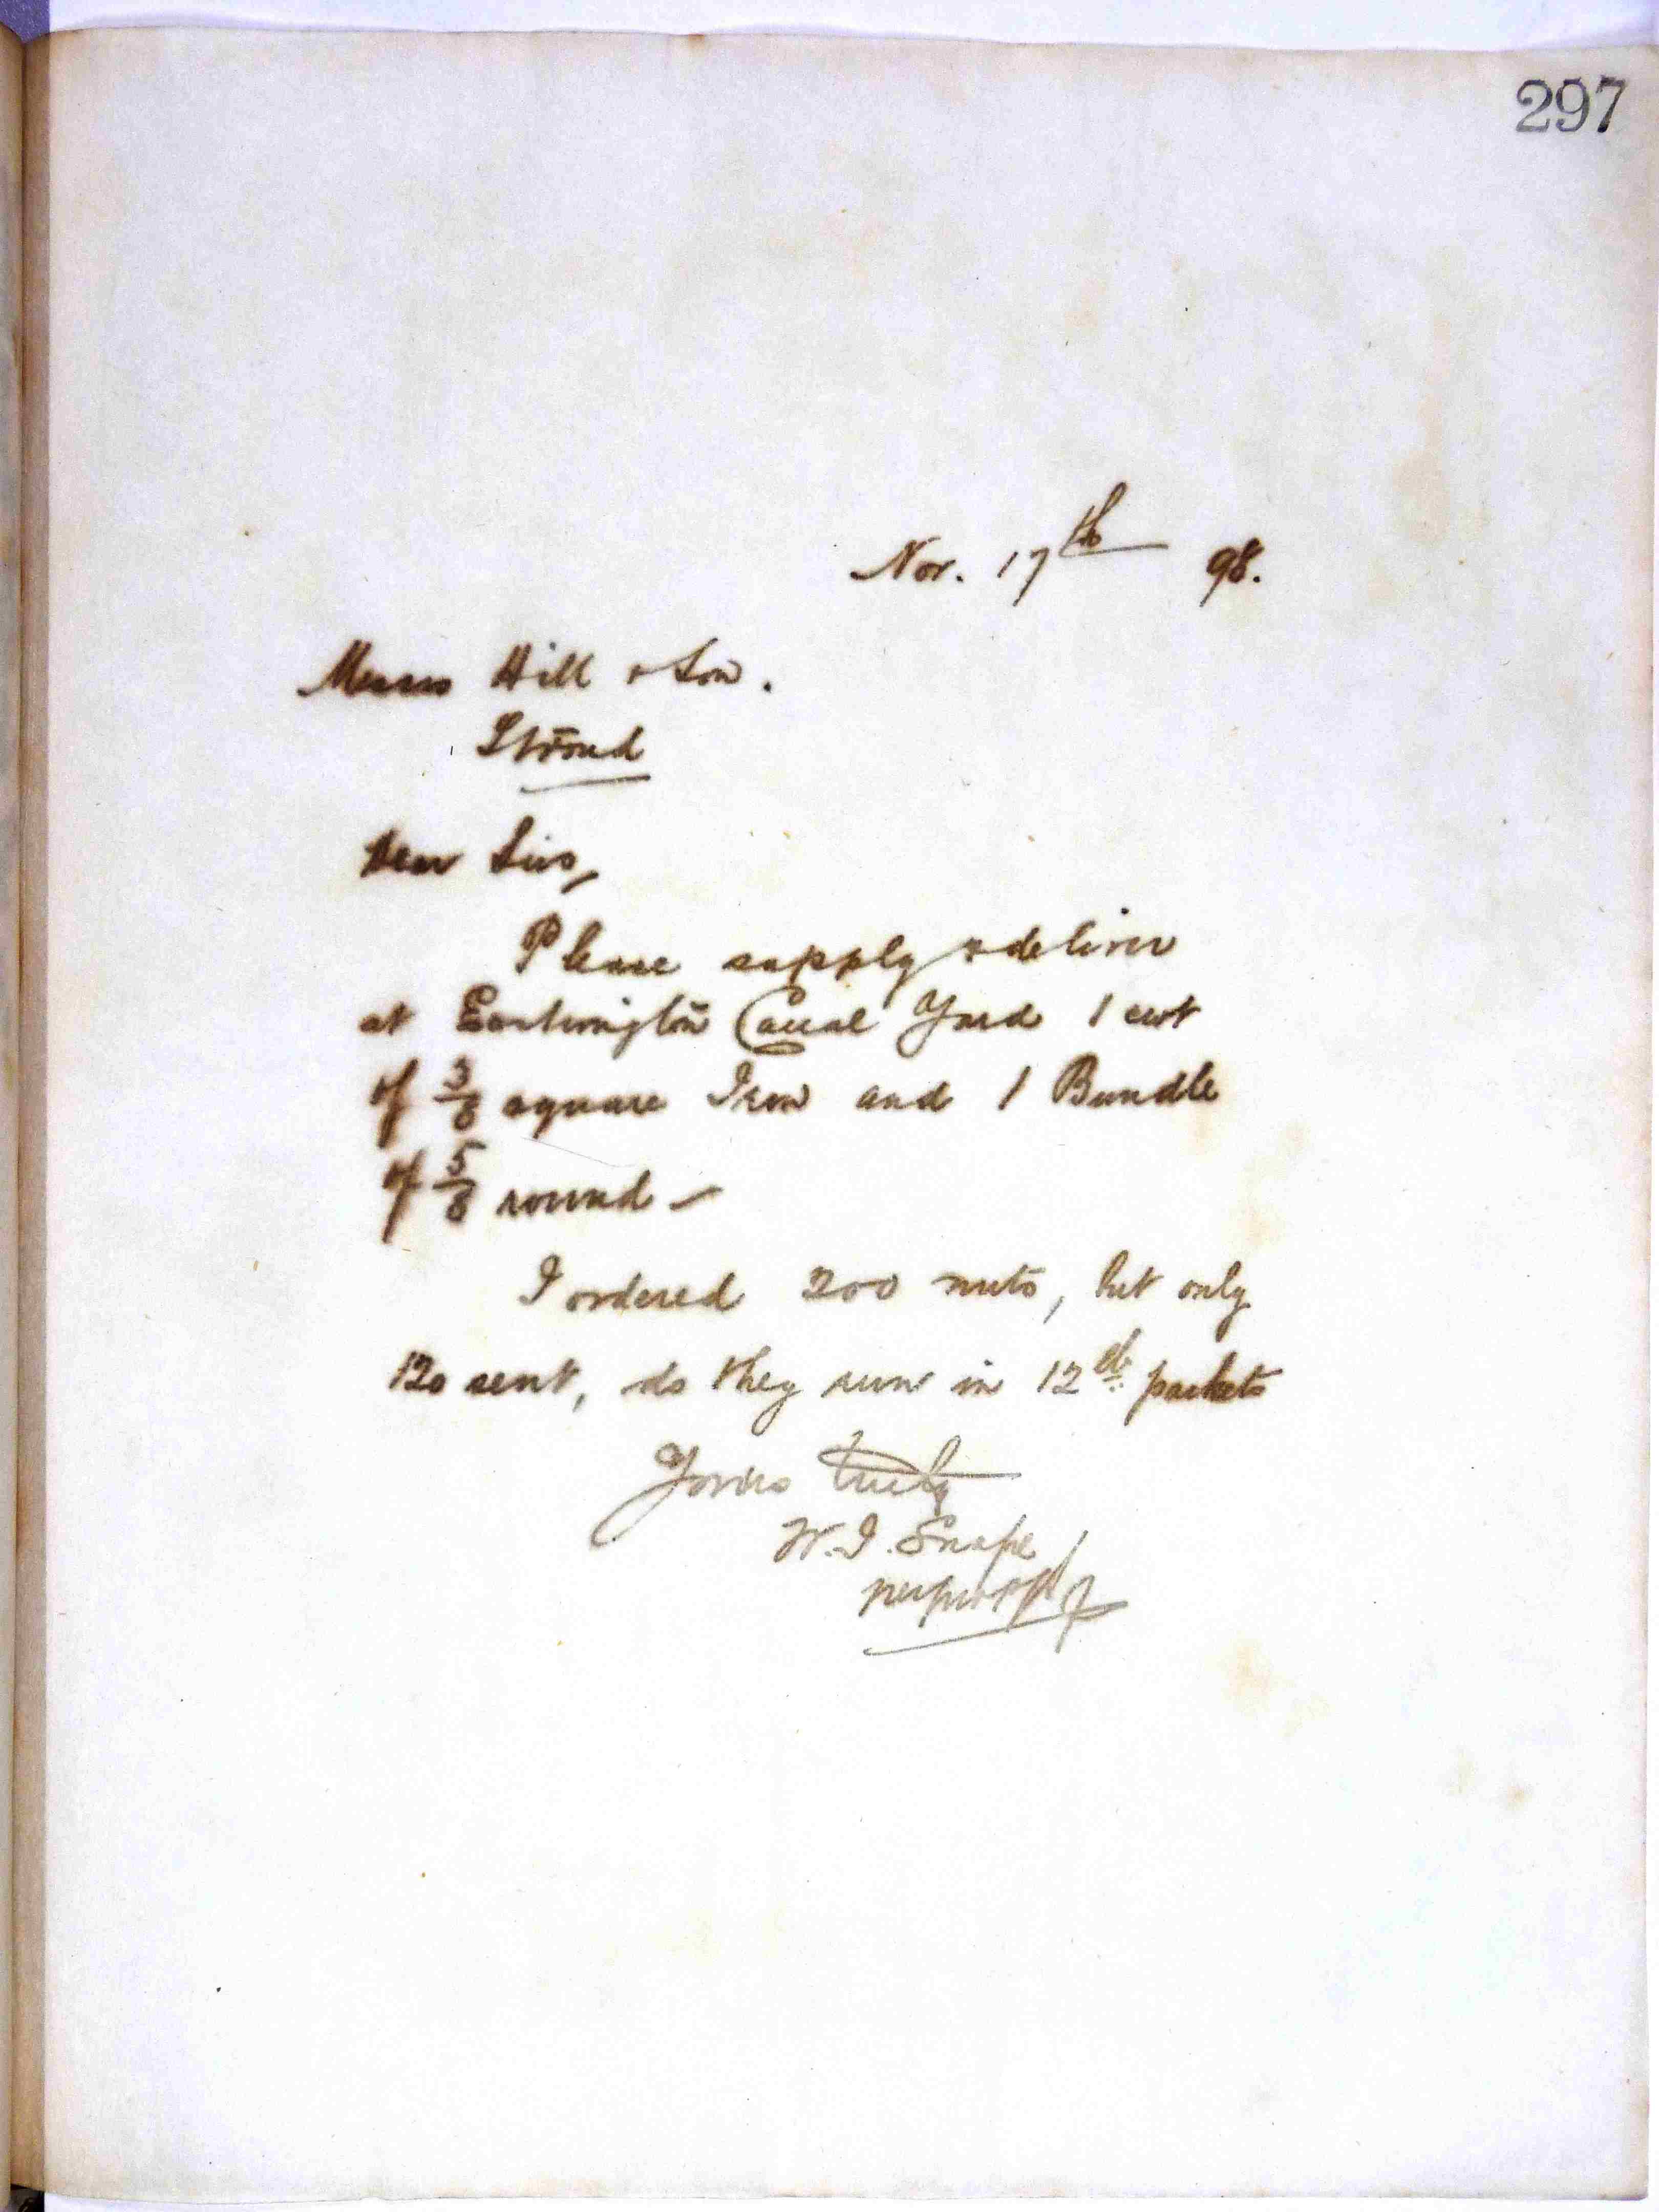 297
Nov. 17th 98.
Messrs Hill & Son.
Stroud
Dear Sirs,
Please supply & deliver
at Eastington Canal Yard 1 cwt
of 3/8 square Iron and 1 Bundle
of 5/8 round —
I ordered 200 nuts, but only
120 sent, do they run in 12 lb. packets
Yours truly
W. J. Snape